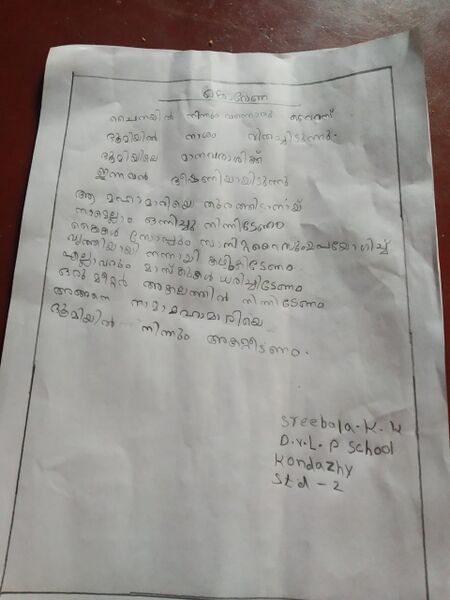 കൊറോണ
ചൈനയിൽ നിന്നും വന്നൊരു വൈറസ്
ഭൂമിയിൽ നാശം വിതച്ചിടുന്നു.
ഭൂമിയിലെ മാനവരാശിക്ക്
ഇന്നവൻ ഭീഷണിയായിടുന്നു
ആ മഹാമാരിയെ തുരത്തിടാനായ്
നാമെല്ലാം ഒന്നിച്ചു നിന്നിടേണം
കൈകൾ സോപ്പും സാനിറ്റൈസറുമുപയോഗിച്ച്
വൃത്തിയായി നന്നായി കഴുകിടേണം
എല്ലാവരും മാസ്കുകൾ ധരിച്ചിടേണം
ഒരു മീറ്റർ അകലത്തിൽ നിന്നിടേണം
അങ്ങനെ നാമാമഹാമാരിയെ
ഭൂമിയിൽ നിന്നും അകറ്റിടണം.
Sreebala. K. H
D.V.L.P School
Kondazhy
Std - 2